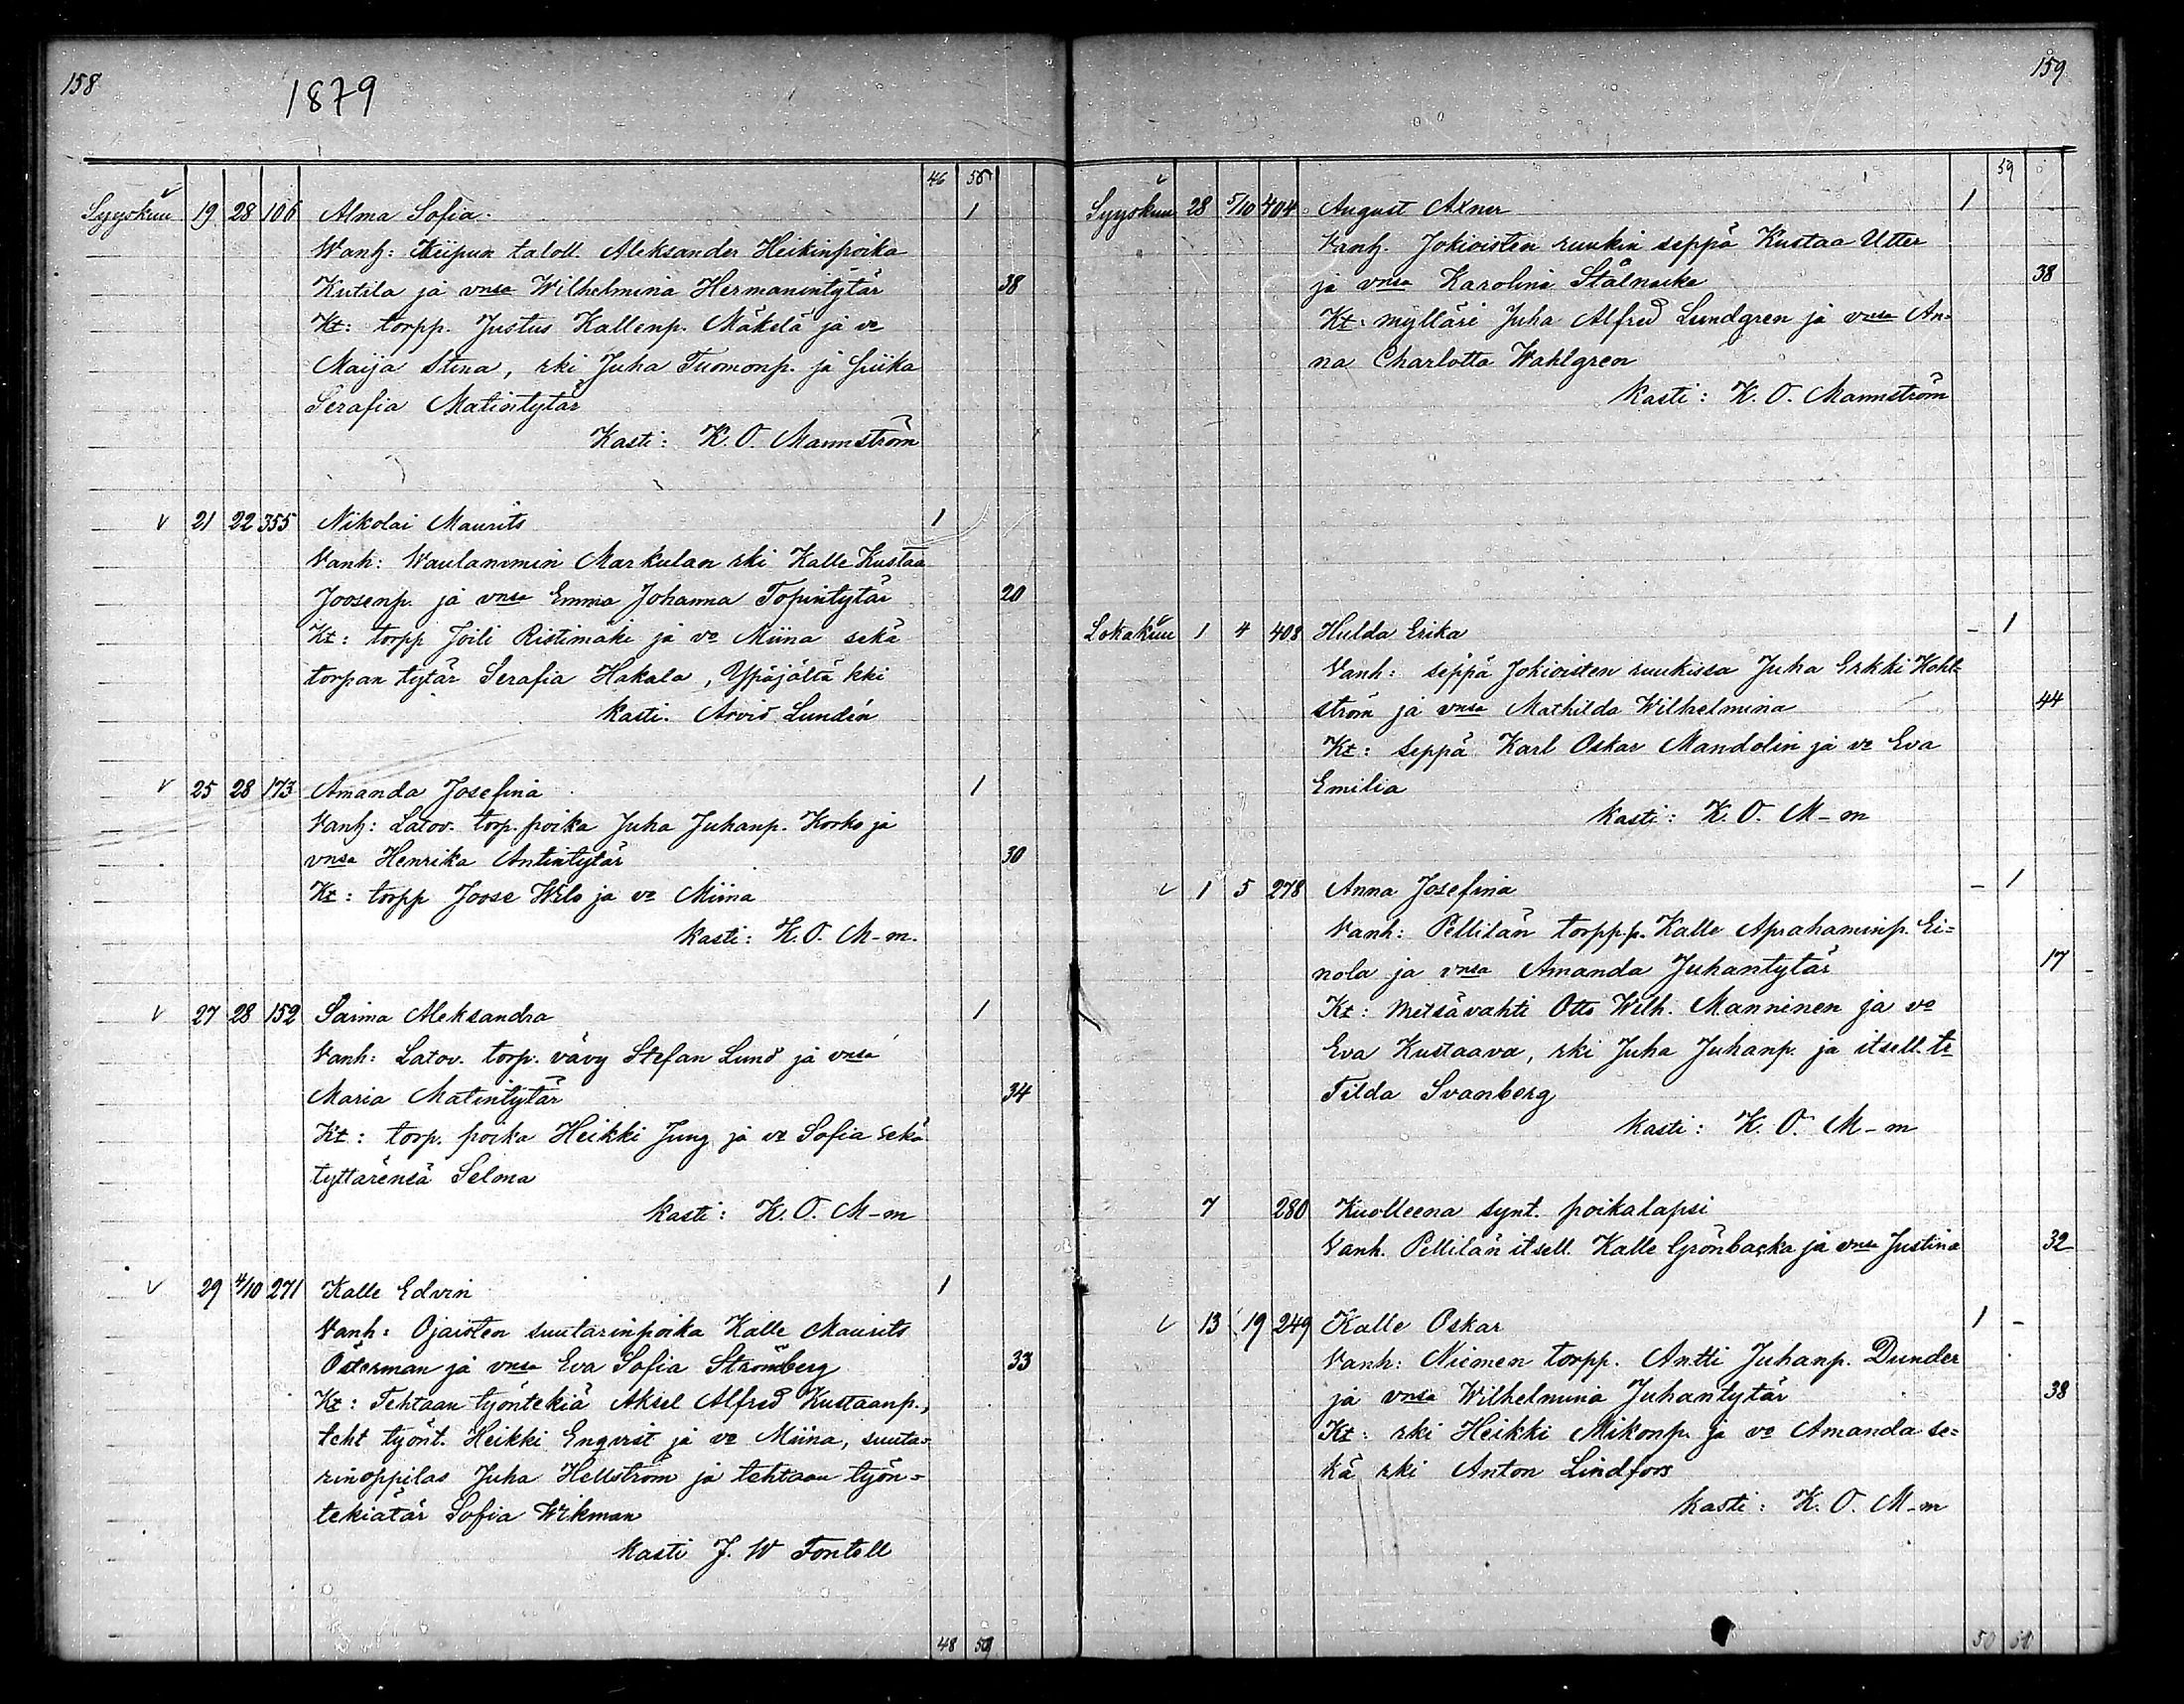 158
1879
46 56
Syyskuu 19 28 106 Alma Sofia. 1
Wanh: Kiipun taloll. Aleksander Heikinpoika
Kutila ja vnsa Wilhelmina Hermanintytär 38
Kt: torpp. Justus Kallenp. Mäkelä ja vo
Maija Stina, rki Juha Tuomonp. ja piika
Serafia Matintytär
Kasti: K. O. Mannström
21 22 355 Nikolai Maurits 1
Vanh: Waulammin Markulan rki Kalle Kustaa
Joosenp. ja vnsa Emma Johanna Topintytär 20
Kt: torpp Joili Ristimäki ja vo Miina sekä
torpan tytär Serafia Hakala, Ypäjältä kki
Kasti. Arvid Lundén
25 28 173 Amanda Josefina 1
Vanh: Latov. torp. poika Juha Juhanp. Korho ja
vnsa Henrika Antintytär 30
Kt: torpp Joose Wilo ja vo Miina
Kasti: K. O. M-m.
27 28 152 Saima Aleksandra 1
Vanh: Latov. torp. vävy Stefan Lund ja vnsa
Maria Matintytär 34
Kt: torp. poika Heikki Jung ja vo Sofia sekä
tyttärensä Selma
Kasti: K. O. M-m
29 4/10 271 Kalle Edvin 1
Vanh: Ojaisten suutarinpoika Kalle Maurits
Österman ja vnsa Eva Sofia Strömberg 33
Kt: Tehtaan työntekiä Aksel Alfred Kustaanp.,
teht työnt. Heikki Enqvist ja vo Miina, suuta-
rinoppilas Juha Hellström ja tehtaan työn=
tekiätär Sofia Wikman
Kasti J. W Fontell
48 59
159
59
Syyskuu 28 5/10 404 August Axner 1
Vanh. Jokioisten ruukin seppä Kustaa Utter
ja vnsa Karolina Stålnacke 38
Kt. mylläri Juha Alfred Lundgren ja vnsa An=
na Charlotta Wahlgren
Kasti: K. O. Mannström
Lokakuu 1 4 408 Hulda Erika - 1
Vanh: seppä Jokioisten ruukissa Juha Erkki Hohl-
ström ja vnsa Mathilda Wilhelmina 44
Kt: seppä Karl Oskar Mandolin ja vo Eva
Emilia
Kasti: K. O. M-m
1 5 278 Anna Josefina - 1
Vanh: Pellilän torpp.p. Kalle Aprahaminp. Ei=
nola ja vnsa Amanda Juhantytär 17
Kt: metsävahti Otto Wilh. Manninen ja vo
Eva Kustaava, rki Juha Juhanp. ja itsell. tr
Tilda Svanberg
Kasti: K. O. M-m
7 280 Kuolleena synt. poikalapsi
Vanh. Pellilän itsell. Kalle Grönbacka ja vnsa Justina 32
13 19 249 Kalle Oskar 1 -
Vanh: Niemen torpp. Antti Juhanp. Dunder
ja vnsa Wilhelmina Juhantytär 38
Kt: rki Heikki Mikonp. ja vo Amanda se=
kä rki Anton Lindfors
Kasti: K. O. M-m
50